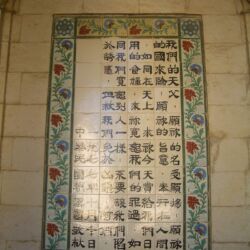 我們的天父 願祢的名受顯揚 願祢
的國來臨 願祢的旨意奉行在人間
如同在天上 求祢今天賞給我們日
用的食糧 求祢寬恕我們的罪過 如
同我們寬恕別人一樣 不要讓我們陷
於誘惑 但救我們免於凶惡
中華民國